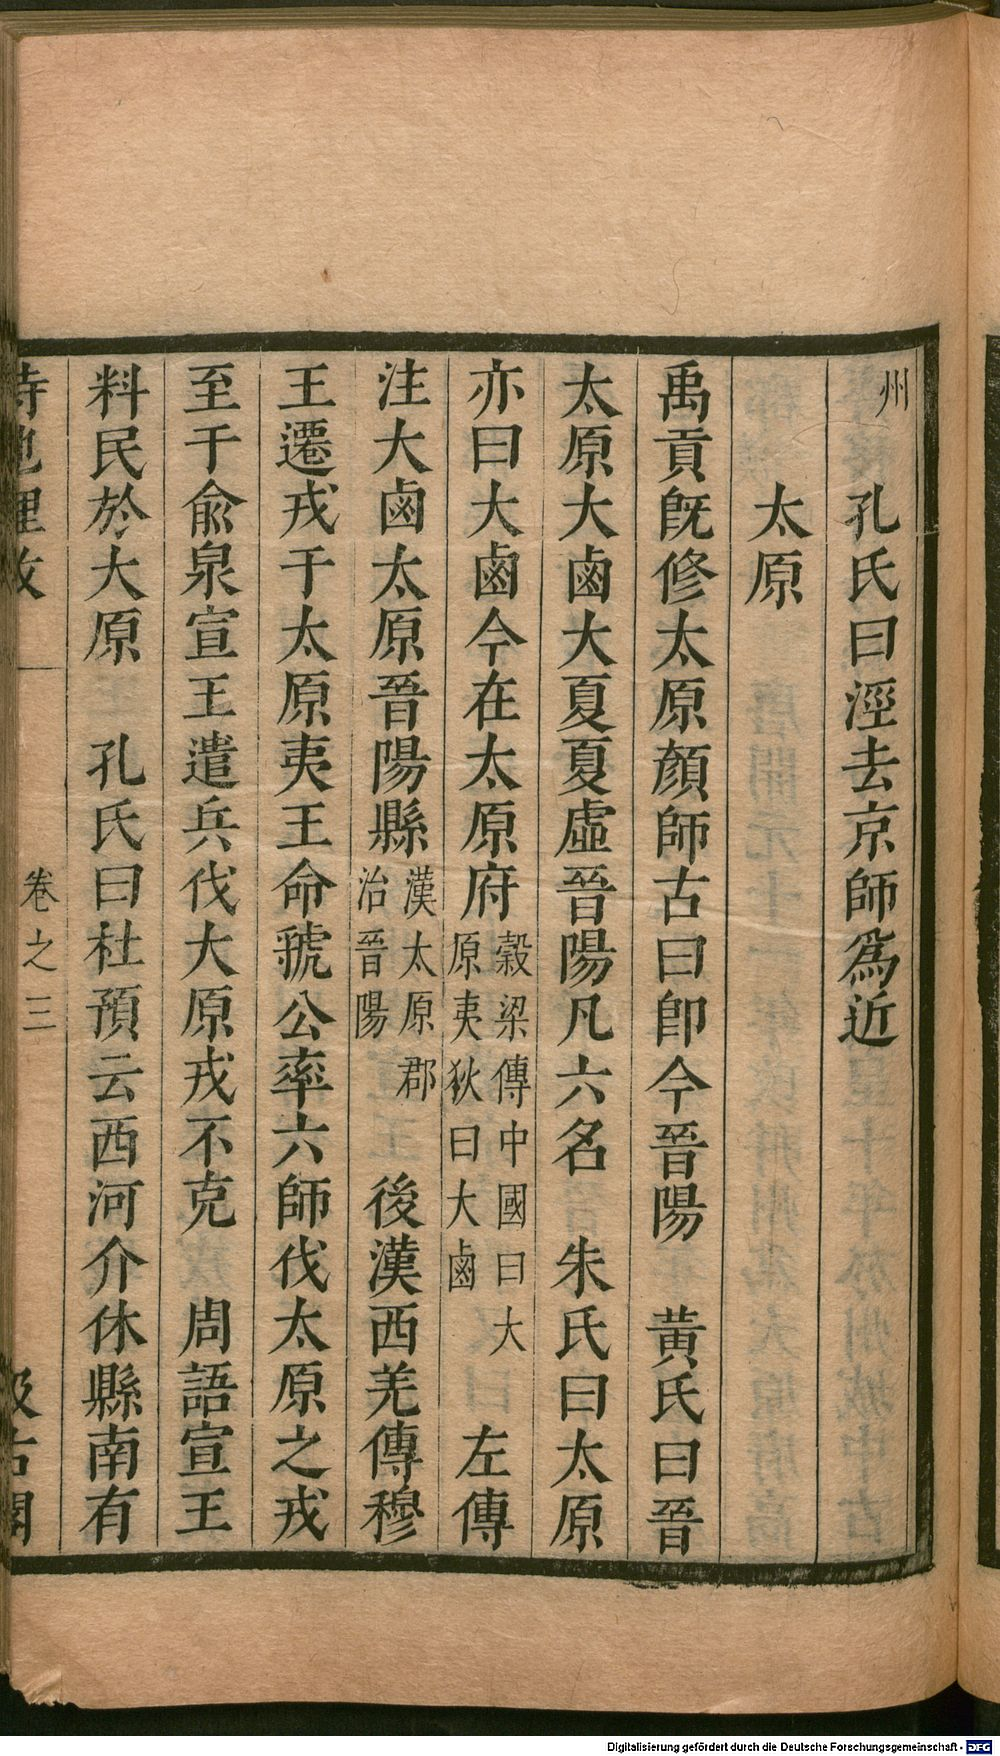 州　孔氏曰涇去京師爲近
太原
禹貢旣修太原顏師古曰卽今晉陽　黃氏曰晉
太原大鹵大夏夏虛晉陽凡六名　朱氏曰太原
亦曰大鹵今在太原府穀梁傳中國曰大原夷狄曰大鹵　左傳
注大鹵太原晉陽縣漢太原郡治晉陽　後漢西羌傳穆
王遷戎于太原夷王命虢公率六師伐太原之戎
至于俞泉宣王遣兵伐大原戎不克　周語宣王
料民於大原　孔氏曰杜預云西河介休縣南有
詩地理攷　卷之三　汲古閣
Digitalisierung gefördert durch die Deutsche Forschungsgemeinschaft - DFG